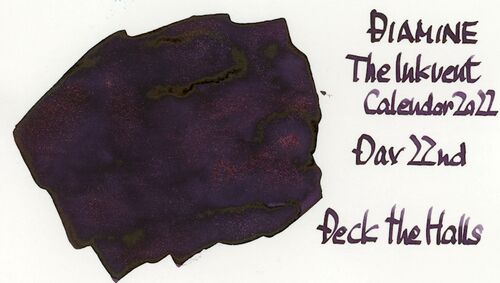 DIAMINE
The Inkvent
Calendar 2022
Day 22nd
Deck the Halls